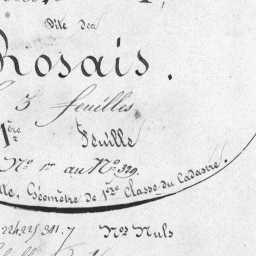 Dite des
Rosais.
3 feuilles
1ère Feuille
Nº 1er au Nº 329.
Géomètre de 1re Classe du Cadastre.
Nos Nuls